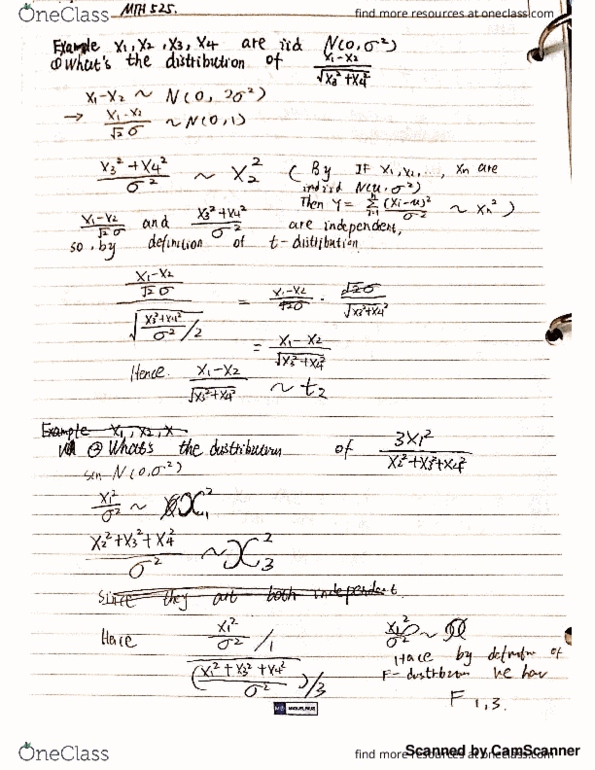 MTH 525.
OneClass find more resources at oneclass.com
Example X1, X2, X3, X4 are iid N(0, σ²)
① What's the distribution of X1-X2 / √X3²+X4²
X1-X2 ~ N(0, 2σ²)
→ X1-X2 / √2 σ ~ N(0,1)
X3²+X4² / σ² ~ X2² ( By IF X1, X2, ..., Xn are
N(u, σ²)
Then Y= Σ (Xi-u)² / σ² ~ Xn² )
X1-X2 / √2 σ and X3²+X4² / σ² are independent,
so, by definition of t-distribution
X1-X2 / √2 σ / √ X3²+X4² / σ² /2 = X1-X2 / √2σ · √2σ / √X3²+X4²
= X1-X2 / √X3²+X4²
Hence. X1-X2 / √X3²+X4² ~ t2
Example X1, X2, X
② What's the distribution of 3X1² / X2²+X3²+X4²
N(0,σ²)
X1² / σ² ~ X1²
X2²+X3²+X4² / σ² ~ X3²
Since they are both independent.
Hace X1² / σ² /1 / (X1²+X3²+X4² / σ²)/3
X1² / σ² ~
Hace by defnition of
F-distribution we hav
F 1,3.
OneClass find more resources at oneclass.com
Scanned by CamScanner